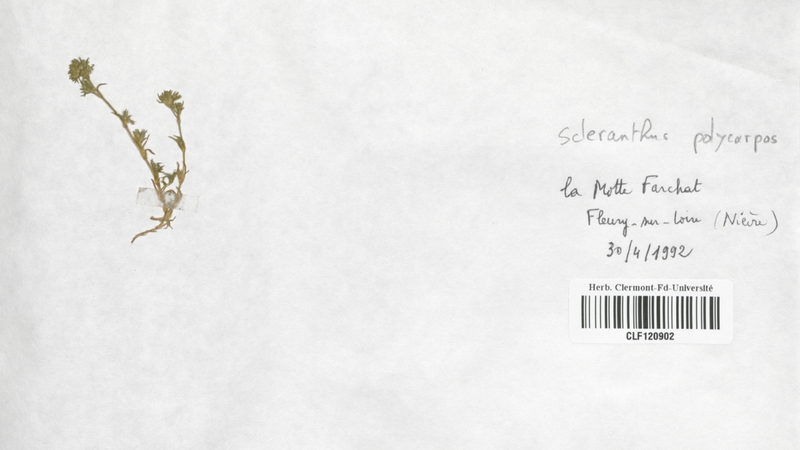 Scleranthus polycarpos
la Motte Farchat
Fleury-sur-Loire (Nièvre)
30/4/1992
Herb. Clermont-Fd-Université
CLF120902